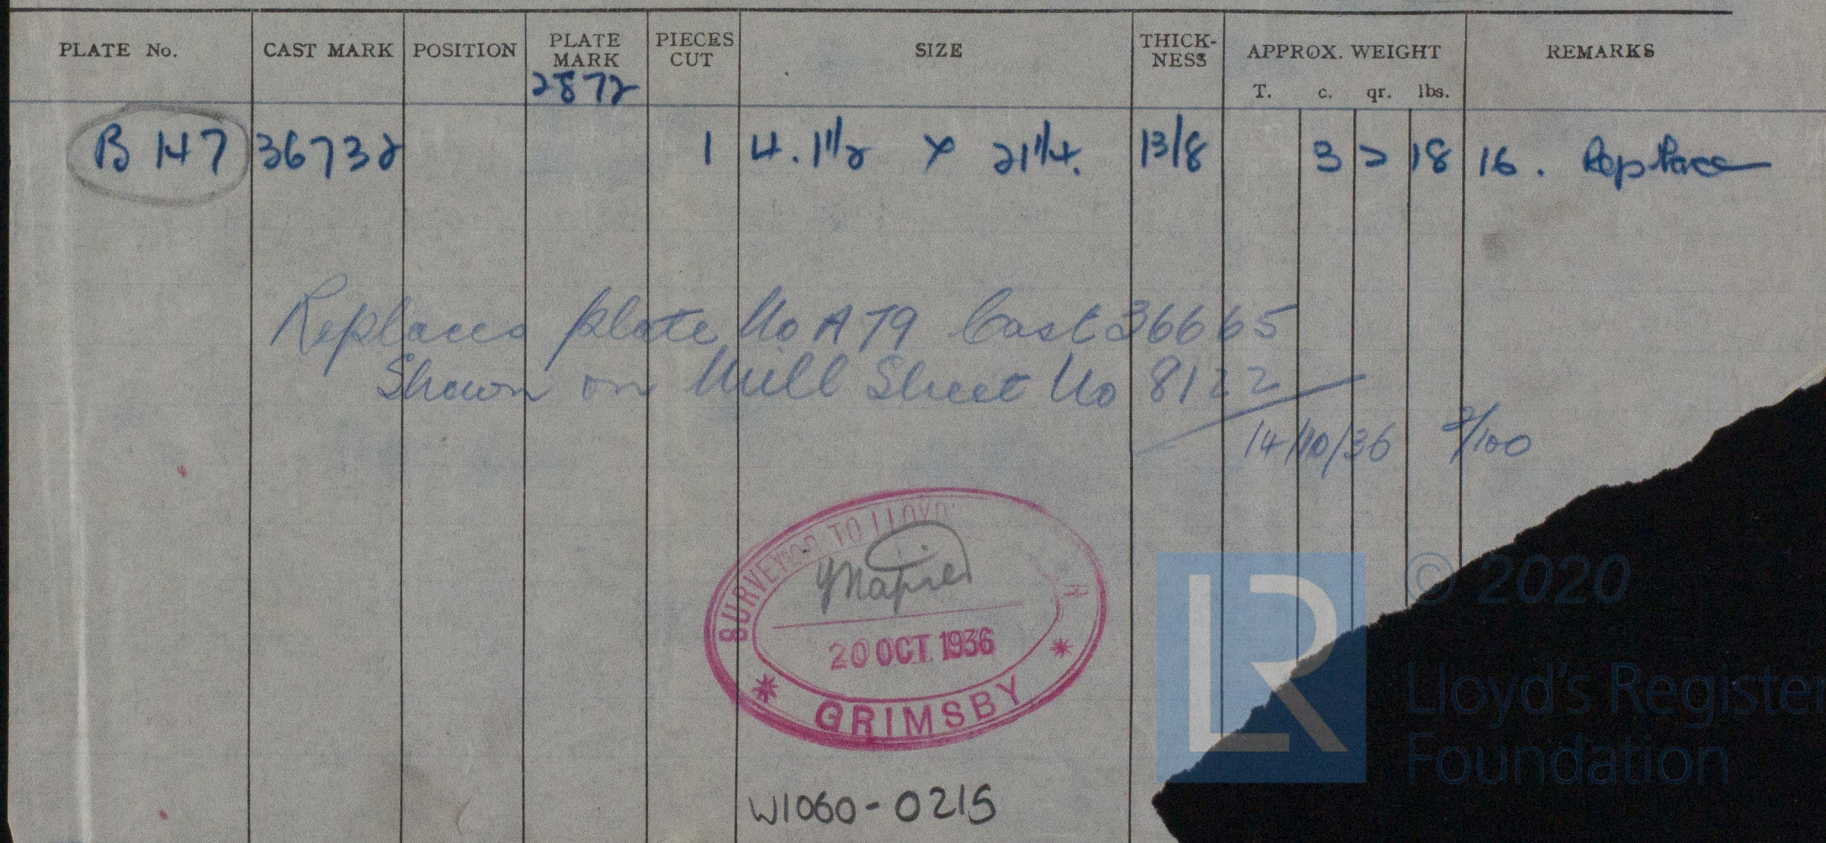 PLATE No. CAST MARK POSITION PLATE MARK PIECES CUT SIZE THICK-NESS APPROX. WEIGHT REMARKS
T. c. qr. lbs.
2872
B 147 36732 1 4. 1 1/2 x 21 1/4. 13/8 3 18 16. Replace
Replaces plate No A79 Cast 36665
Shewn on Mill Sheet No 8122
14/10/36 /100
SURVEYOR TO LLOYD
20 OCT. 1936
GRIMSBY
W1060-0215
LR
© 2020
Lloyd's Register
Foundation